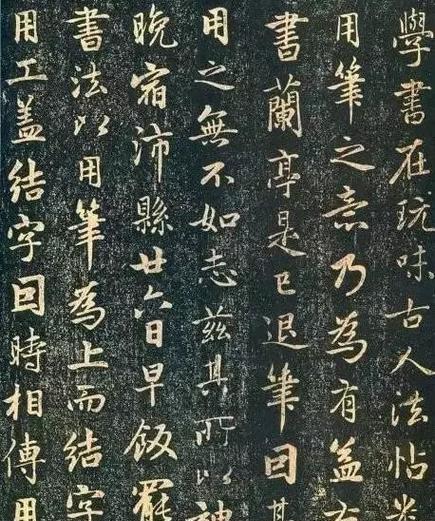 學書在玩味古人法帖
用筆之意乃為有益
書蘭亭是已退筆因
用之無不如志茲其所以神
晚宿沛縣廿六日早飯罷
書法以用筆為上而結字
用工蓋結字因時相傳用